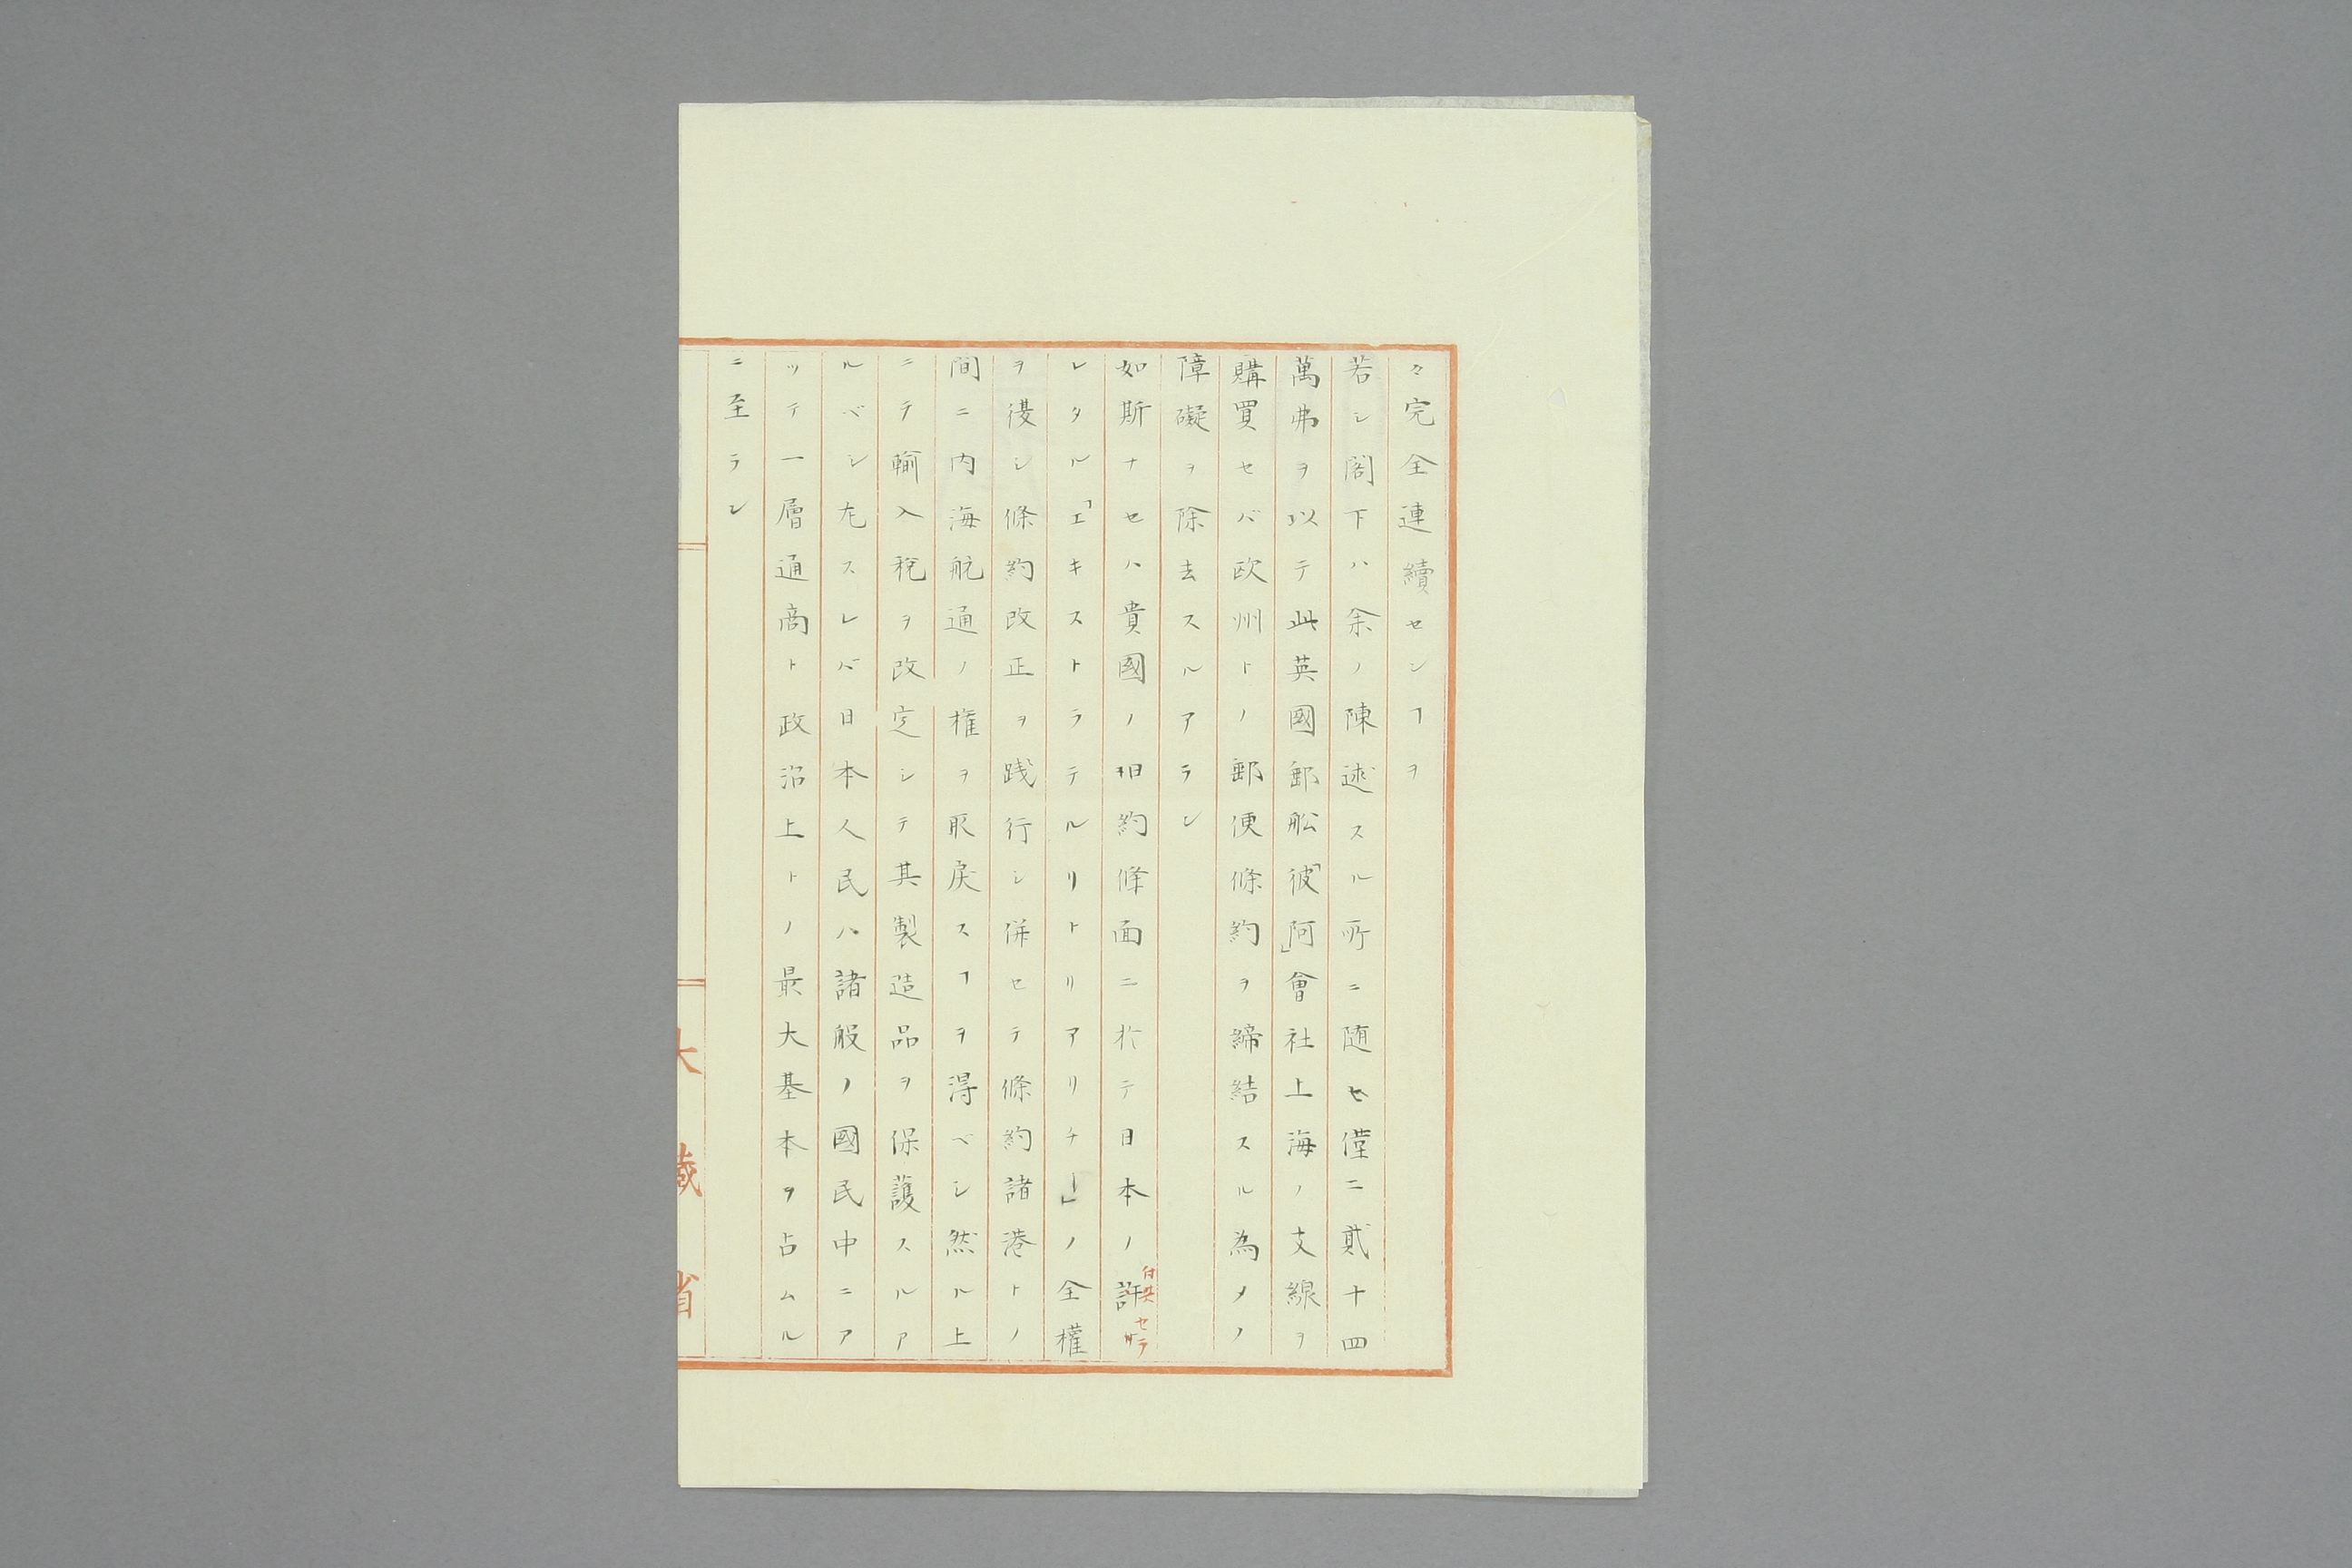 々完全連續センヿヲ
若シ閣下ハ余ノ陳述スル所ニ随セ僅ニ貳十四
萬弗ヲ以テ此英國郵舩「彼阿」會社上海ノ支線ヲ
購買セバ欧州トノ郵便條約ヲ締結スル為メノ
障礙ヲ除去スルアラン
如斯ナセハ貴國ノ旧約條面ニ於テ日本ノ許
付與セラ
レタル「エキストラテルリトリアリチー」ノ全權
ヲ復シ條約改正ヲ践行シ併セテ條約諸港トノ
間ニ内海航通ノ権ヲ取戻スヿヲ得ベシ然ル上
ニテ輸入税ヲ改定シテ其製造品ヲ保護スルア
ルベシ左スレバ日本人民ハ諸般ノ國民中ニア
ッテ一層通商ト政治上トノ最大基本ヲ占ムル
ニ至ラン
大藏省